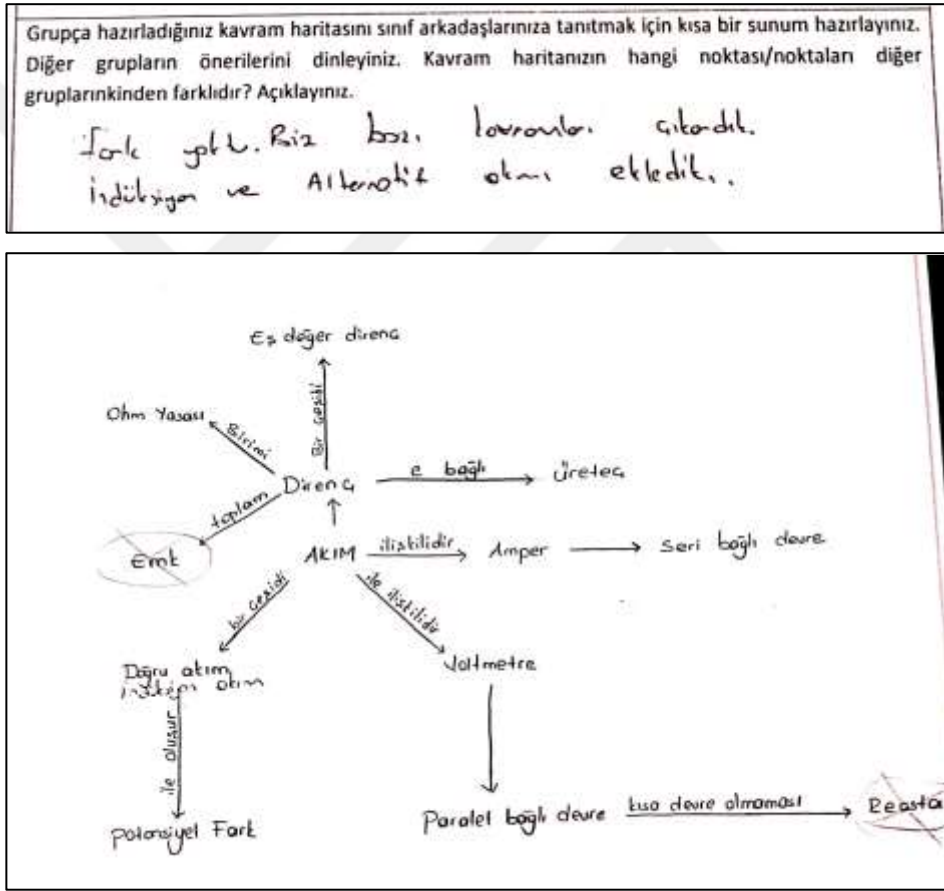 Grupça hazırladığınız kavram haritasını sınıf arkadaşlarınıza tanıtmak için kısa bir sunum hazırlayınız.
Diğer grupların önerilerini dinleyiniz. Kavram haritanızın hangi noktası/noktaları diğer
gruplarınkinden farklıdır? Açıklayınız.
fark yoktu. Biz bazı kavramları çıkardık.
İndüksiyon ve Alternatif akımı ekledik.
Eş değer direnç
Ohm Yasası
Birimi
Bir çeşidi
Direnç
e bağlı
Üreteç
toplam
Emk
AKIM
ilişkilidir
Amper
Seri bağlı devre
bir çeşidi
ile ilişkilidir
Doğru akım
akım
Voltmetre
ile oluşur
Potansiyel Fark
Paralel bağlı devre
kısa devre olmaması
Reosta